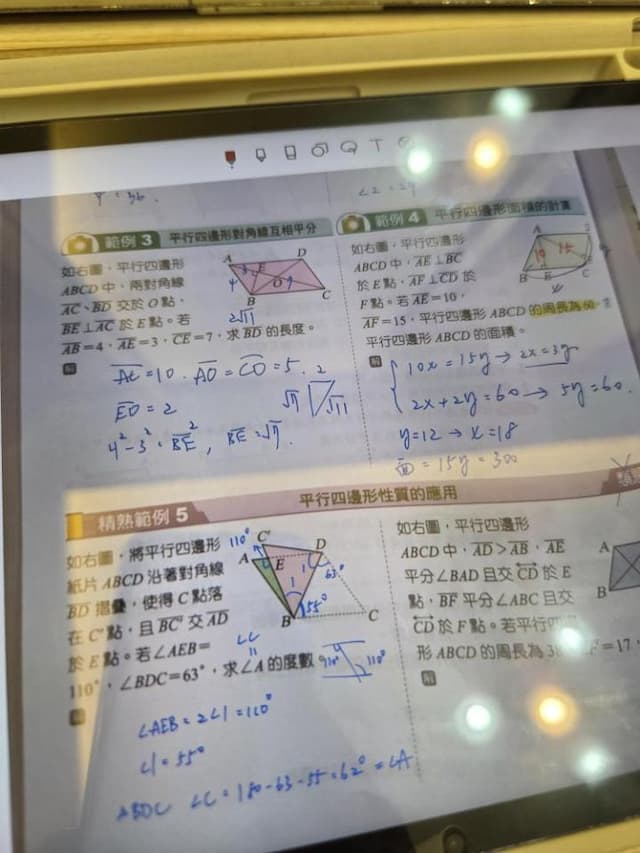 y = 36.
∠2 = 24
範例 3 平行四邊形對角線互相平分
如右圖，平行四邊形
ABCD 中，兩對角線
AC、BD 交於 O 點，
BE⊥AC 於 E 點。若
AB=4，AE=3，CE=7，求 BD 的長度。
A D
3 E
4 O
B C
2√11
解
AC=10. AO=CO=5.
EO=2
4²-3²=BE², BE=√7.
2
√7 √11
範例 4 平行四邊形面積的計算
如右圖，平行四邊形
ABCD 中，AE⊥BC
於 E 點，AF⊥CD 於
F 點。若 AE=10，
AF=15，平行四邊形 ABCD 的周長為 60，求
平行四邊形 ABCD 的面積。
A
10 15
B E C
解
10x=15y→2x=3y
2x+2y=60→5y=60.
y=12→x=18
面=15y=300
平行四邊形性質的應用
精熟範例 5
如右圖，將平行四邊形
紙片 ABCD 沿著對角線
BD 摺疊，使得 C 點落
在 C' 點，且 BC' 交 AD
於 E 點。若∠AEB=
110°，∠BDC=63°，求∠A 的度數。
∠C
110° C' D
A E 1 63°
1 55°
B C
110° 110°
解
∠AEB=2∠1=110°
∠1=55°
△BDC ∠C=180-63-55=62°=∠A
如右圖，平行四邊形
ABCD 中，AD>AB，AE
平分∠BAD 且交 CD 於 E
點，BF 平分∠ABC 且交
CD 於 F 點。若平行四
形 ABCD 的周長為 =17，
A
B
解